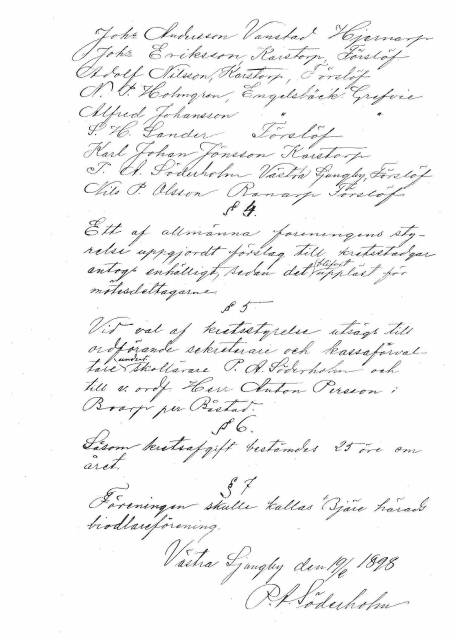 Johs Andersson Vanstad Hjernarp
Johs Eriksson, Karstorp, Förslöf
Adolf Nilsson, Karstorp, Förslöf
N. P. Holmgren, Engelsbäck Grefvie
Alfred Johansson " "
S. H. Sander Förslöf
Karl Johan Jönsson Karstorp
P. A. Söderholm Västra Ljungby, Förslöf
Nils P. Olsson Ranarp Förslöf
§ 4.
Ett af allmänna föreningens sty-
relse uppgjordt förslag till kretsstadgar
antogs enhälligt, sedan det blifvit uppläst för
mötesdeltagarne.
§ 5
Vid val af kretsstyrelse utsågs till
ordförande sekreterare och kassaförval-
tare undert. skollärare P. A. Söderholm och
till v. ordf Herr Anton Persson i
Boarp per Båstad.
§ 6.
Såsom kretsafgift bestämdes 25 öre om
året.
§ 7
Föreningen skulle kallas "Bjäre härads
biodlareförening.
Västra Ljungby den 19/2 1898
P. A. Söderholm